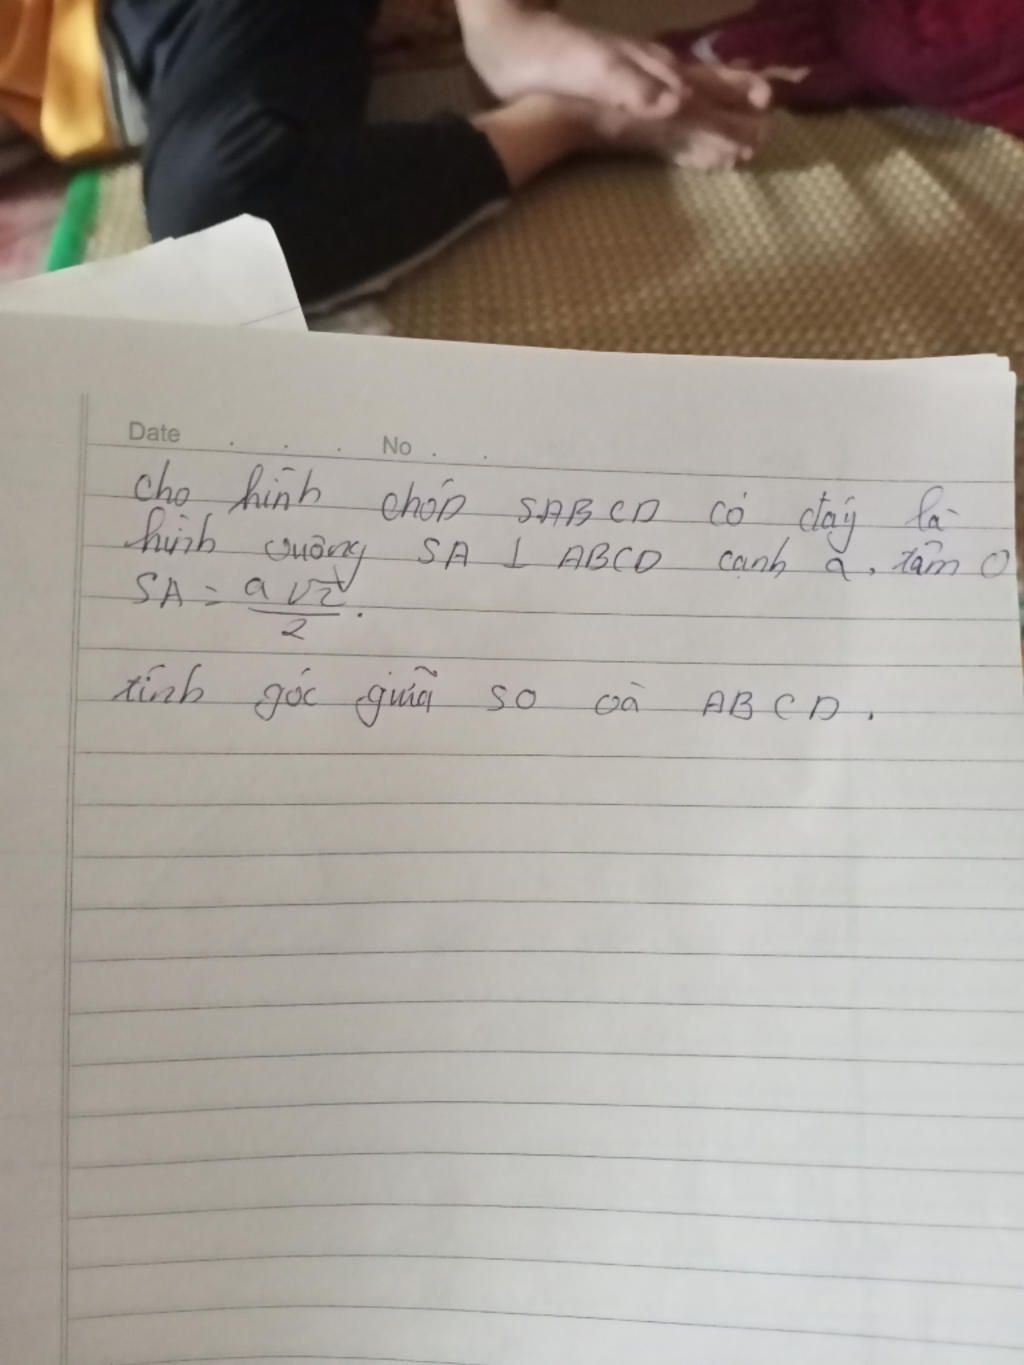 Date . . . No . .
cho hình chóp SABCD có đáy là
hình vuông SA ⊥ ABCD cạnh a, tâm O
SA = a√2/2.
tính góc giữa SO và ABCD.